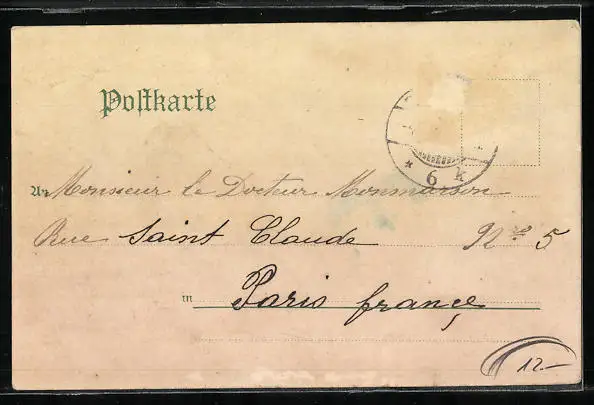 Postkarte
* 6 k
An Monsieur le Docteur Monmarson
Rue Saint Claude No 5
in Paris françe
12.-